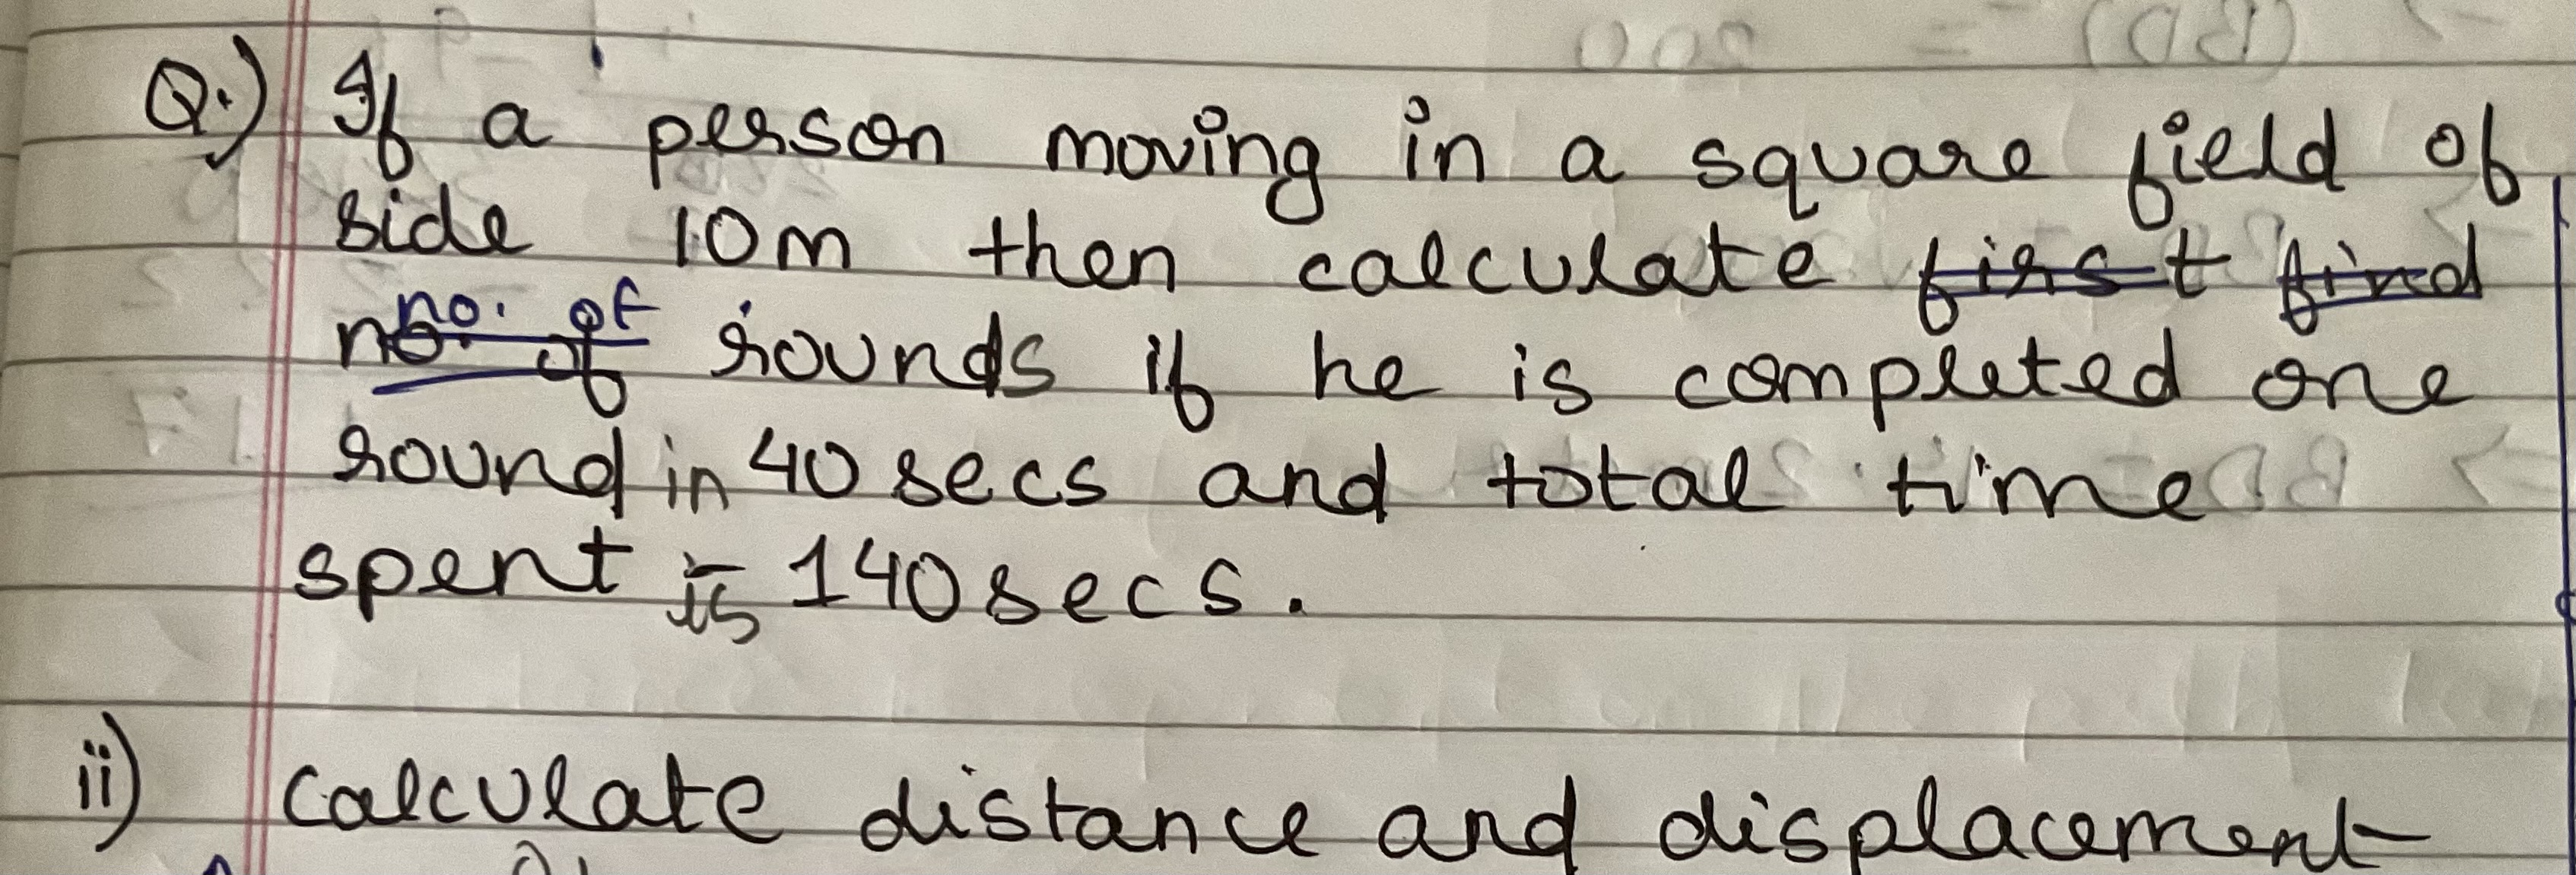 Q.) If a person moving in a square field of
side 10m then calculate first find
no. of
no. of rounds if he is completed one
round in 40 secs and total time
spent is 140 secs.
ii) calculate distance and displacement